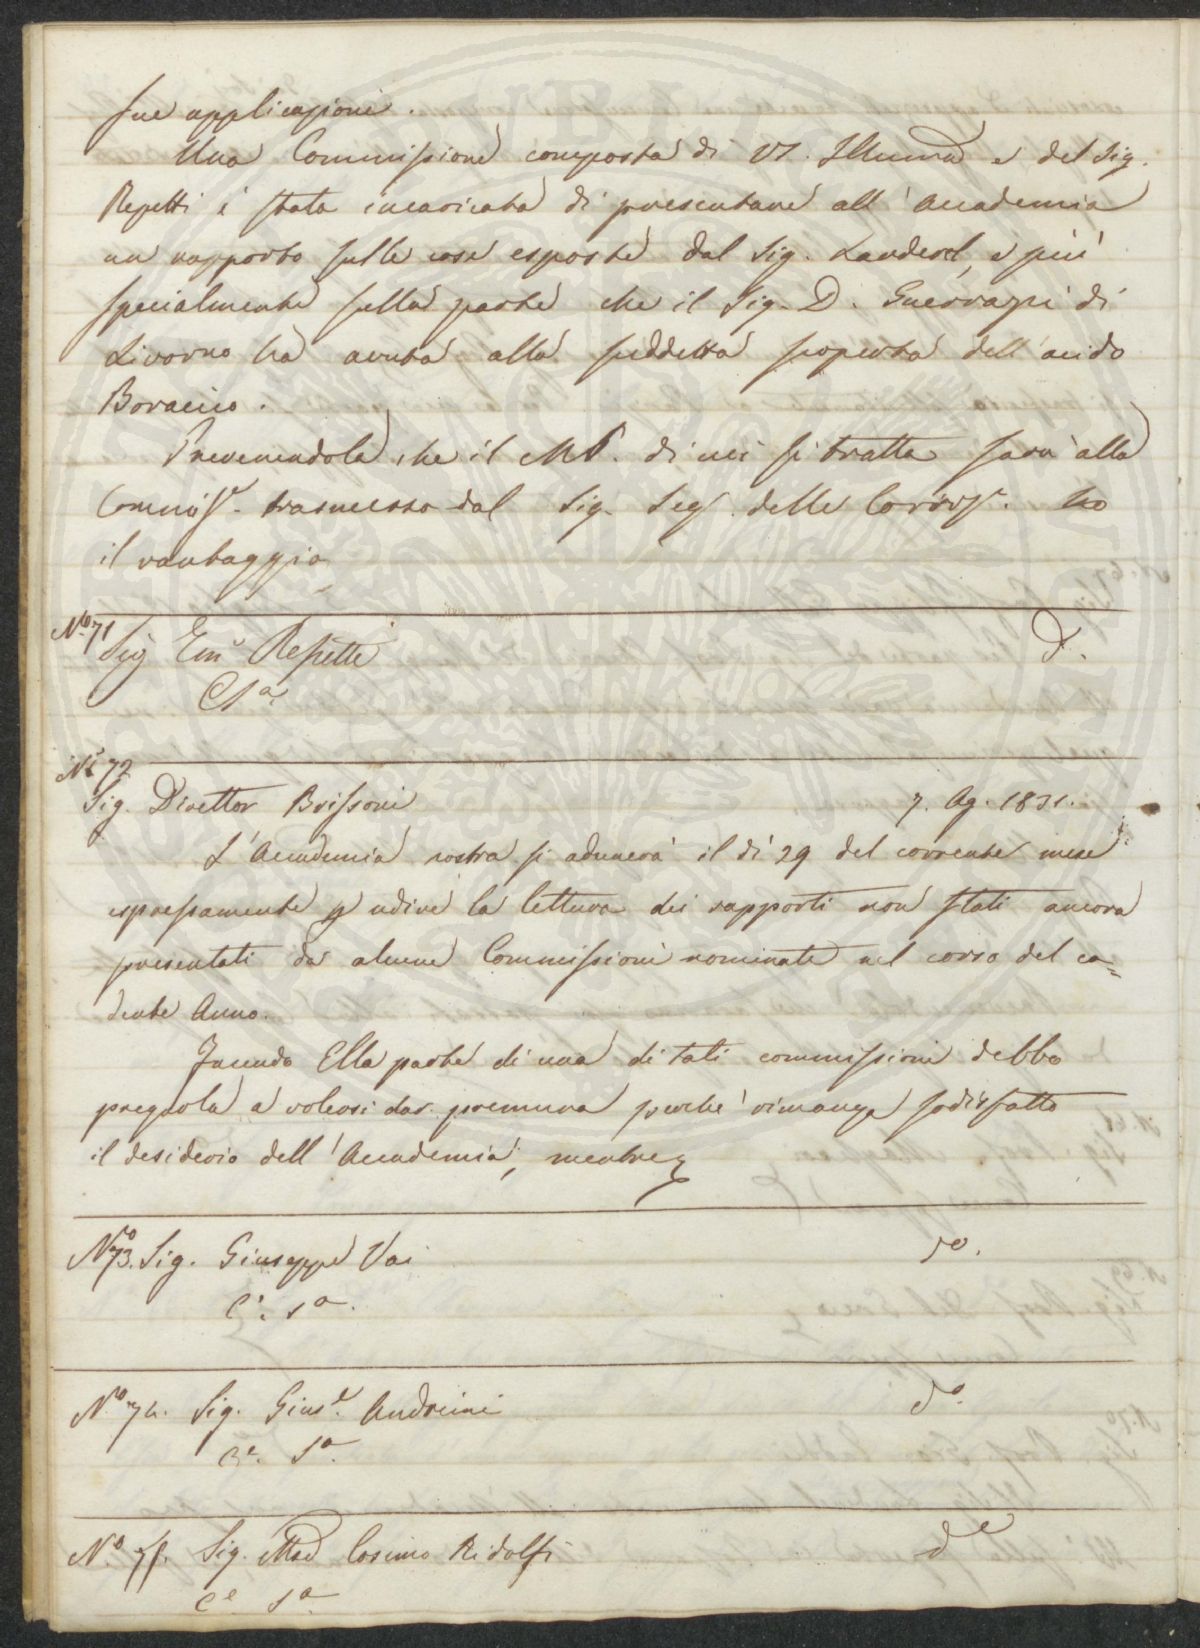 sue applicazioni.
Una Commissione composta di VS. Illuma e del Sig.
Repetti è stata incaricata di presentare all'Accademia
un rapporto sulle cose esposte dal Sig. Larderel, e più
specialmente sulla parte che il Sig. D. Guerrazzi di
Livorno ha avuta alla suddetta scoperta dell'acido
Boracico.
Prevenendola, che il MS. di cui si tratta sarà alla
Commise. trasmesso dal Sig. Seg. delle Corrise. ho
il vantaggio
No. 71
Sig Eml Repetti D.
Ce Sa
No 72
Sig. Direttor Brissoni 7. Ag. 1831.
L'Accademia nostra si adunerà il dì 29 del corrente mese
espressamente p udire la lettura dei rapporti non stati ancora
presentati da alcune Commissioni nominate nel corso del ca=
dente Anno.
Facendo Ella parte di una di tali commissioni debbo
pregarla a volersi dar premura perchè rimanga sodisfatto
il desiderio dell'Accademia, mentre
No 73. Sig. Giuseppe Vai do.
Ce. Sa.
No 74. Sig. Giuse. Andreini do.
Ce. Sa.
No 75. Sig. Mse Cosimo Ridolfi do
Ce Sa